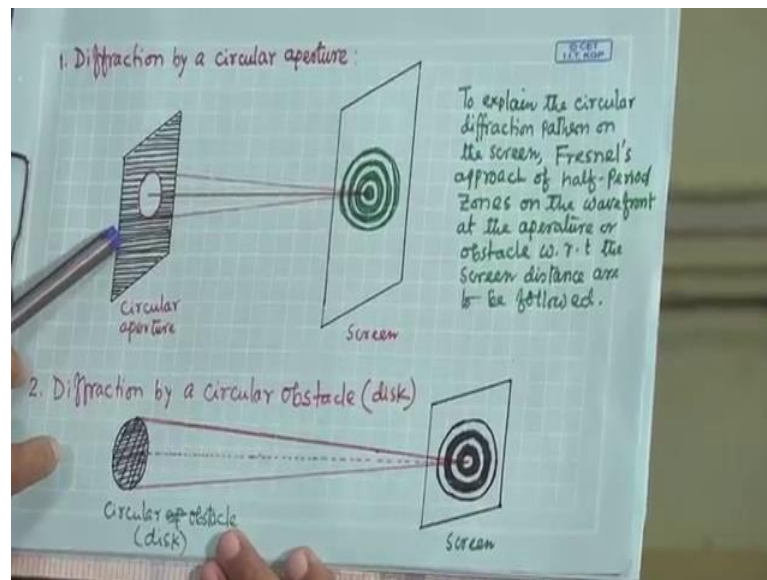 1. Diffraction by a circular aperture:
© CET
I.I.T. KGP
To explain the circular
diffraction pattern on
the screen, Fresnel's
approach of half-Period
Zones on the wavefront
at the aperature or
obstacle w.r.t the
Screen distance are
to be followed.
Circular
aperture
Screen
2. Diffraction by a circular obstacle (disk)
Circular obstacle
(disk)
Screen